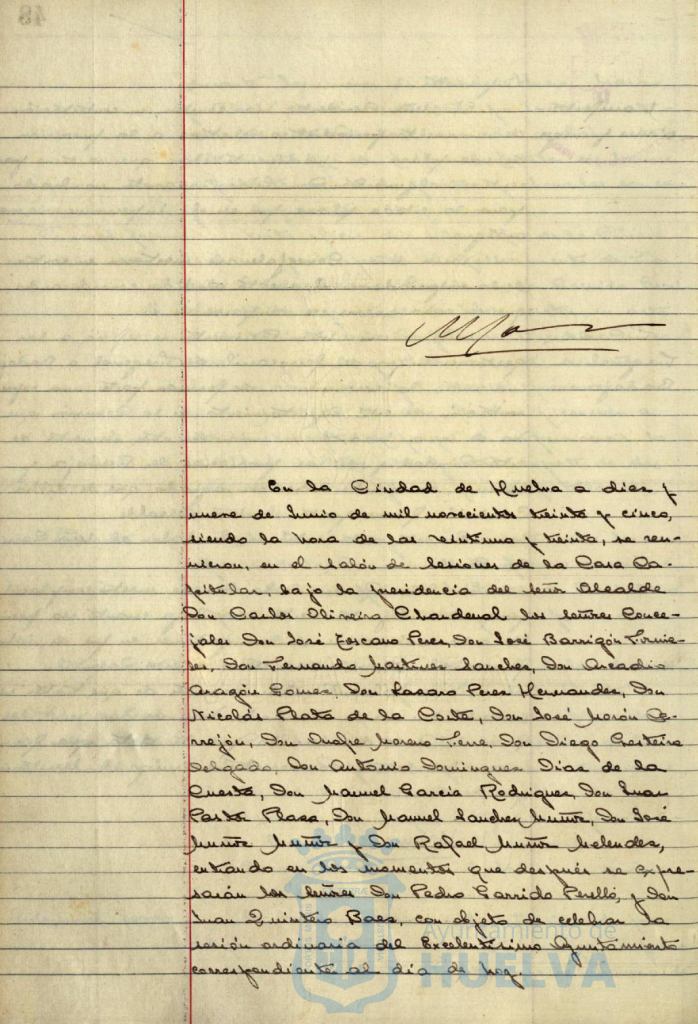 En la Ciudad de Huelva a diez y
nueve de Junio de mil novecientos treinta y cinco,
siendo la hora de las veintiuna y treinta, se reu-
nieron, en el salón de Sesiones de la Casa Ca-
pitular, bajo la presidencia del Señor Alcalde
Don Carlos Oliveira Chardenal los Señores Conce-
jales Don José Toscano Perez, Don José Barrigón
Don Fernando Martinez Sanchez, Don Arcadio
Aragón Gomez, Don Lazaro Perez Hernandez, Don
Nicolás Plata de la Corte, Don José Morón Ce-
rrejón, Don Moreno Don Diego
Delgado, Don Antonio Dominguez Diaz de la
Cuesta, Don Manuel Garcia Rodriguez, Don Juan
Plaza, Don Manuel Sanchez Muñoz, Don José
Muñoz Muñoz y Don Rafael Muñoz Melendez,
entrando en los momentos que después se expre-
sarán los Señores Don Pedro Garrido Perelló, y Don
Juan Quintero Baez, con objeto de celebrar la
sesión ordinaria del Excelentísimo Ayuntamiento
correspondiente al dia de hoy.
Ayuntamiento de
HUELVA